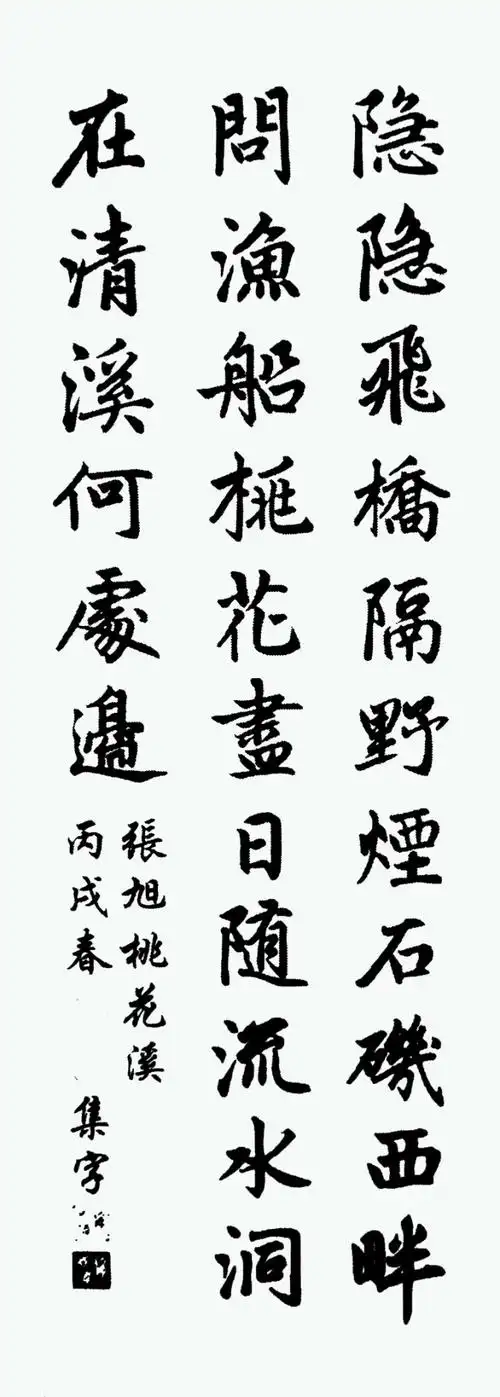 隐隐飛橋隔野煙石磯西畔
問漁船桃花盡日随流水洞
在清溪何處邊
張旭桃花溪
丙戌春
集字